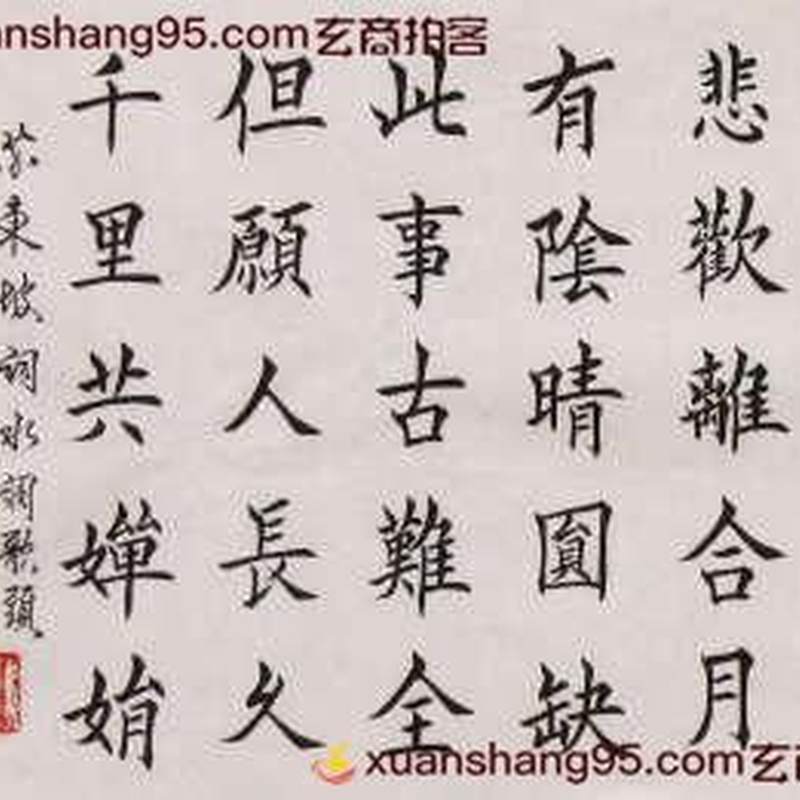 悲歡離合月
有陰晴圓缺
此事古難全
但願人長久
千里共嬋娟
東坡詞水調歌頭
anshang95.com玄商拍客
xuanshang95.com玄商